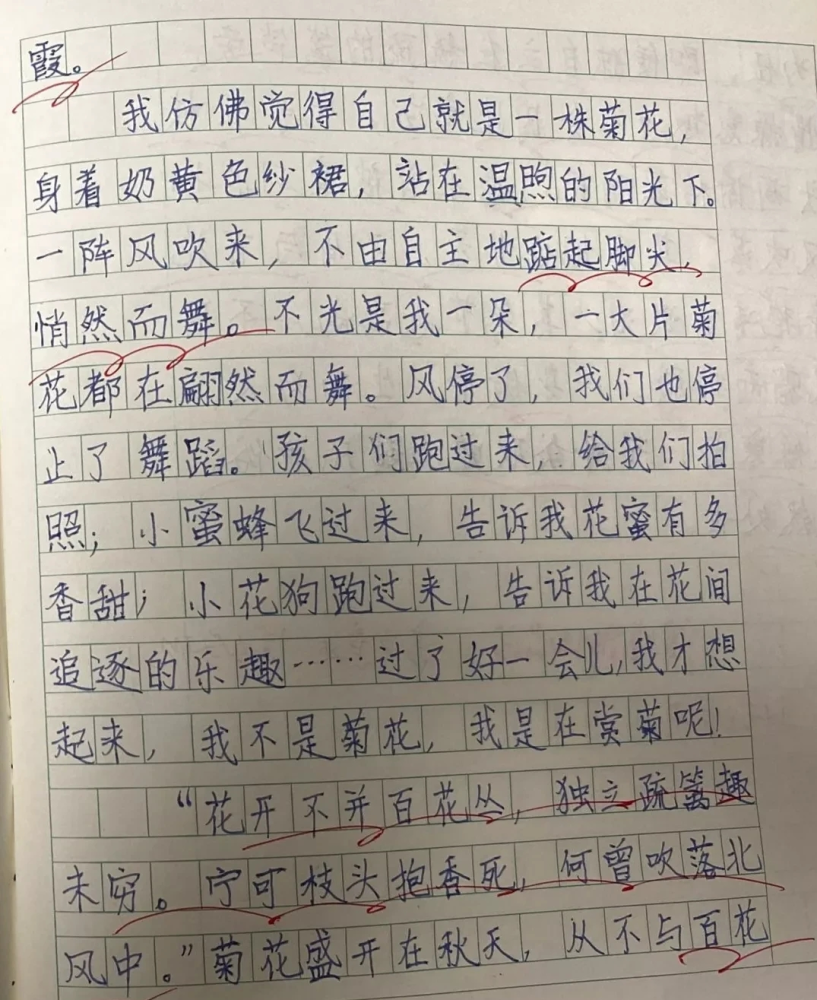 霞。
我仿佛觉得自己就是一株菊花，
身着奶黄色纱裙，站在温煦的阳光下。
一阵风吹来，不由自主地踮起脚尖，
悄然而舞。不光是我一朵，一大片菊
花都在翩然而舞。风停了，我们也停
止了舞蹈。孩子们跑过来，给我们拍
照；小蜜蜂飞过来，告诉我花蜜有多
香甜；小花狗跑过来，告诉我在花间
追逐的乐趣……过了好一会儿，我才想
起来，我不是菊花，我是在赏菊呢！
“花开不并百花丛，独立疏篱趣
未穷。宁可枝头抱香死，何曾吹落北
风中。”菊花盛开在秋天，从不与百花